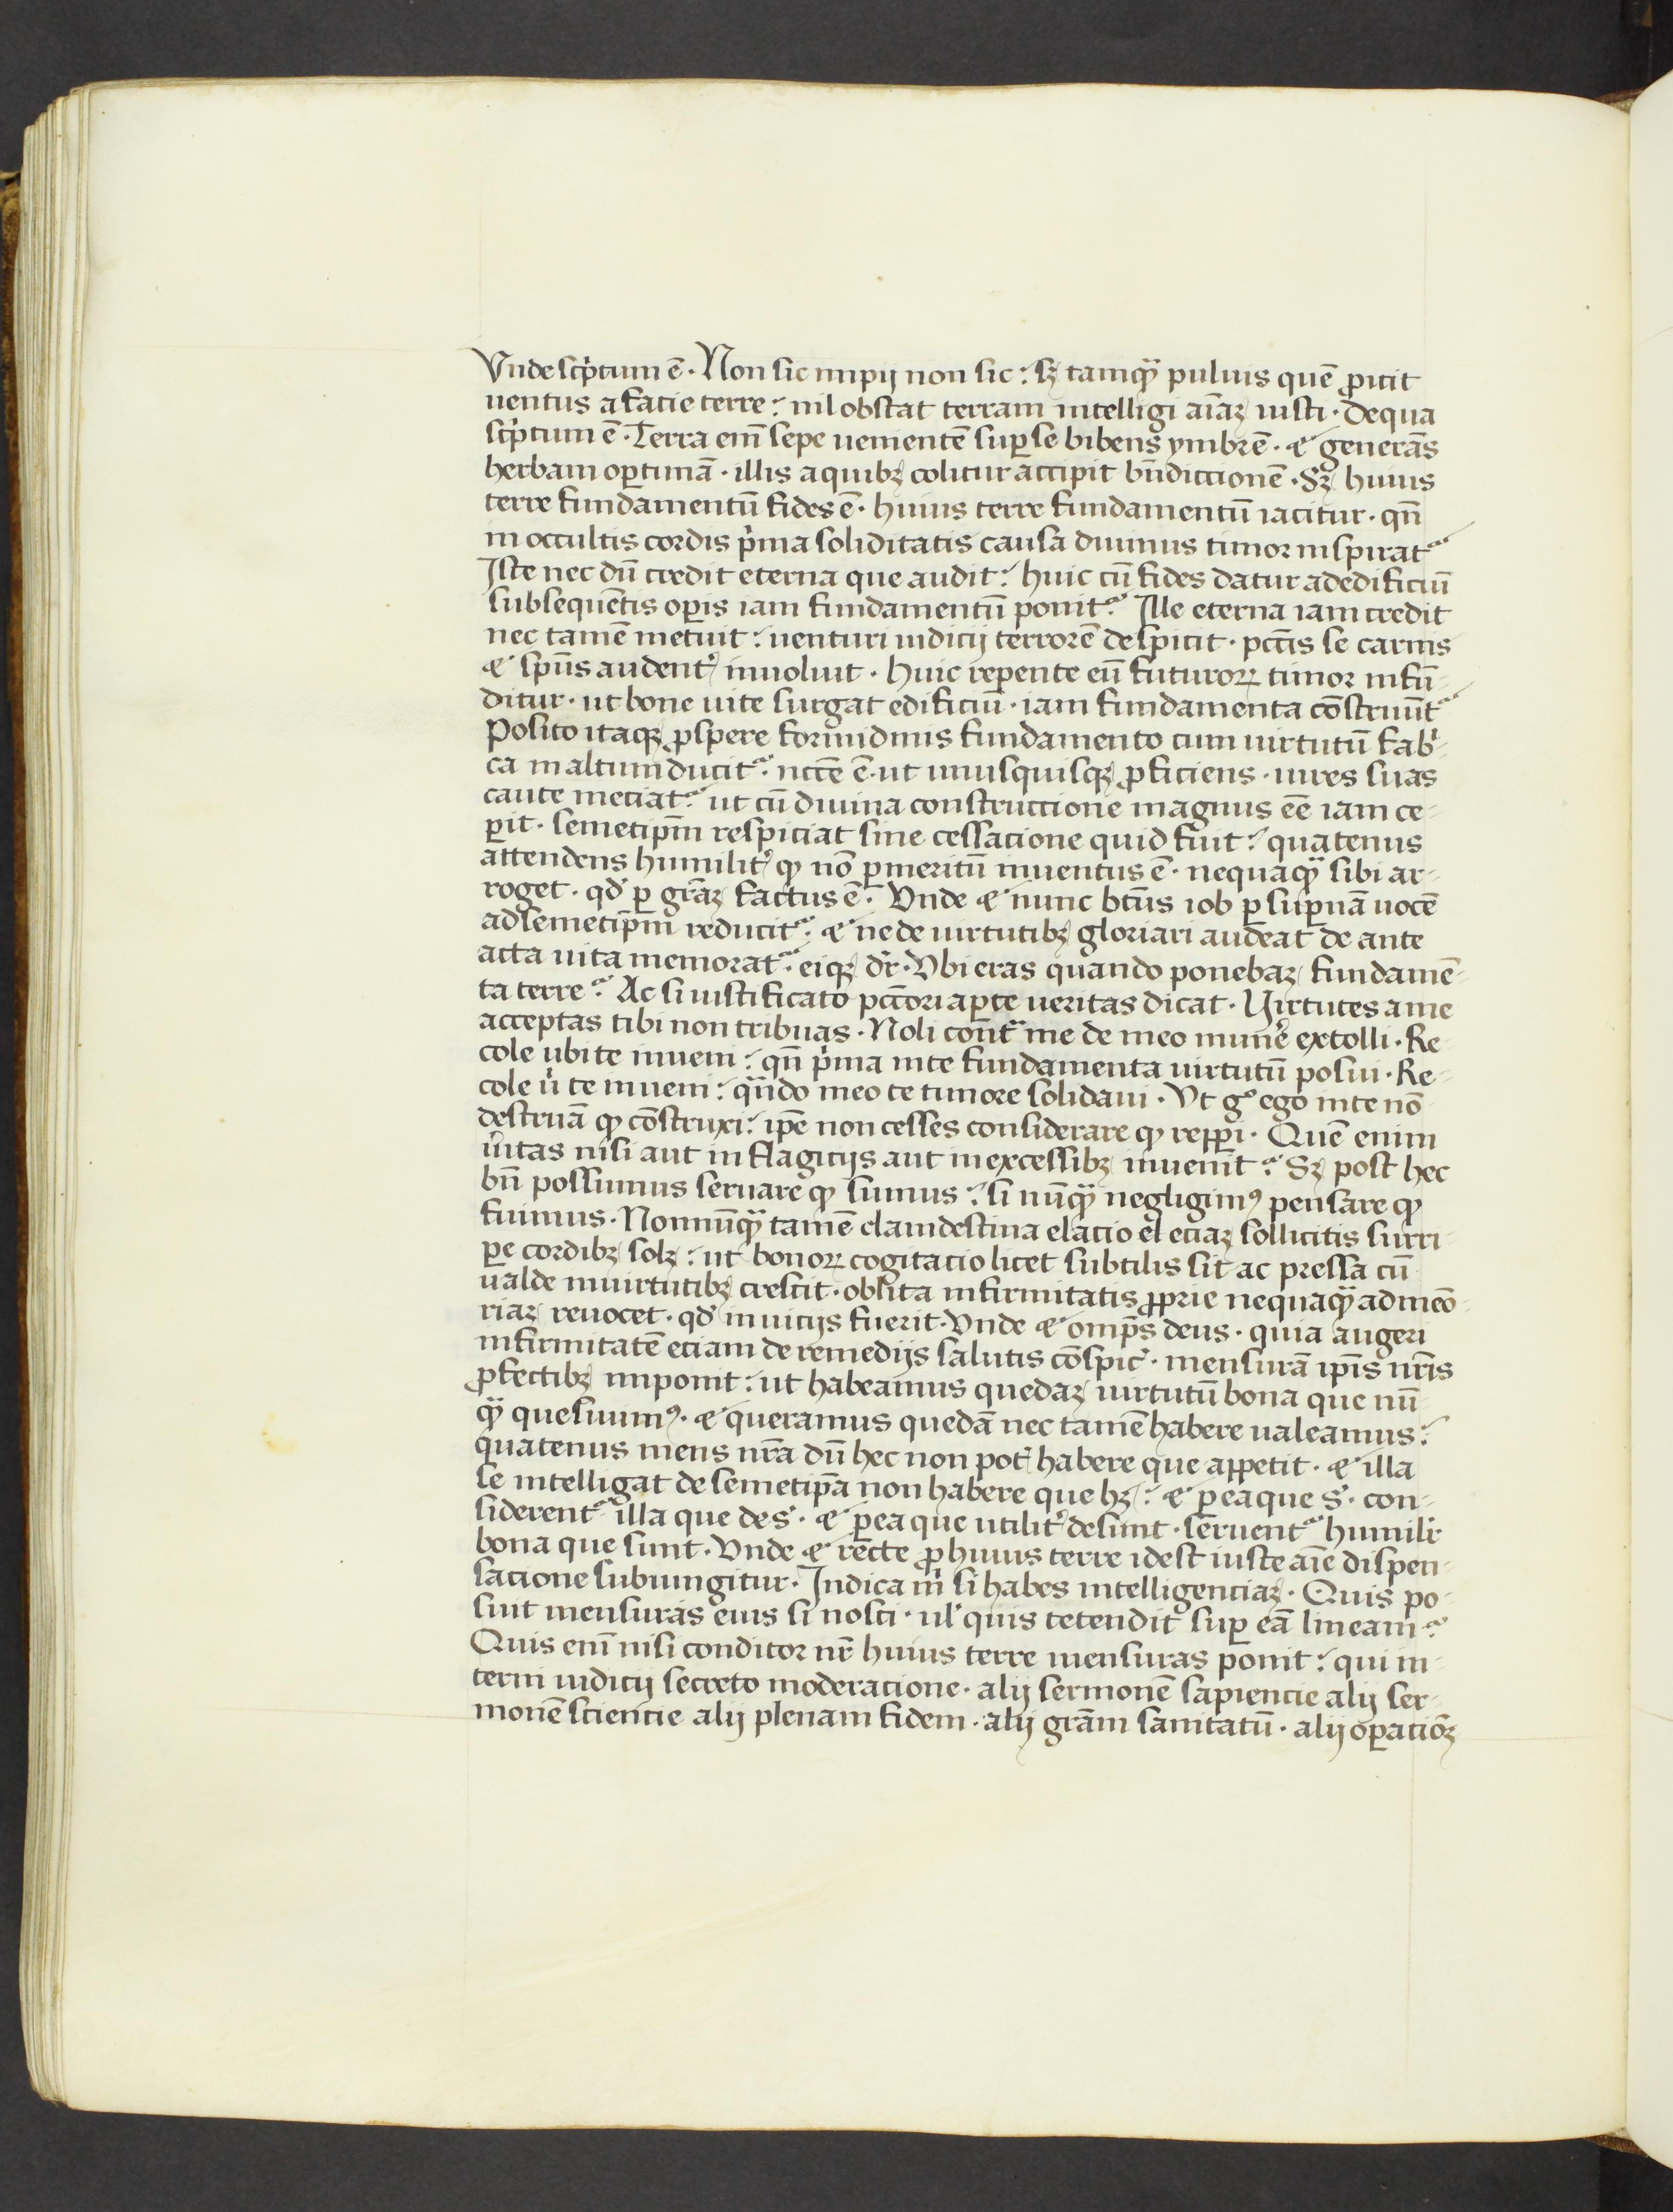 Vnde scͥptum ē · Non sic impij non sic : sꝫ tamqᷓ puluis quē ꝓicit
uentus a facie terre : nil obstat terram intelligi aīaꝫ iusti · De qua
scͥptum ē · Terra em̄ sepe uenientē suꝑ se bibens ymbrē · ⁊ generās
herbam optimā · illis a quibꝫ colitur accipit bn̄diccionē · Sꝫ huius
terre fundamentū fides ē · huius terre fundamentū iacitur · qn̄
in occultis cordis pͥma soliditatis causa diuinus timor inspirat᷑
Iste nec dū credit eterna que audit : huic cū fides datur ad edificiū
subsequētis oꝑis iam fundamentū ponit᷑ : Ille eterna iam credit
nec tamē metuit : uenturi iudicij terrorē despicit · pctīs se carnis
⁊ sp̄us audent᷑ inuoluit · Huic repente cū futuroꝝ timor infū-
ditur · ut bone uite surgat edificiū · iam fundamenta cōstruūt᷑
Posito itaqꝫ ꝓspere formidinis fundamento cum uirtutū fabͥ-
ca in altum ducit᷑ : nccē ē · ut unusquisqꝫ ꝓficiens · uires suas
caute meciat᷑ : ut cū diuina construccione magnus eē iam ce-
ꝑit · semetip̄m respiciat sine cessacione quid fuit : quatenus
attendens humilit᷑ ꝙ nō ꝑ meritū inuentus ē · nequaqᷓ sibi ar-
roget · qd̓ ꝑ gr̄aꝫ factus ē · Vnde ⁊ nunc bt̄us iob ꝑ suꝑnā uocē
ad semetip̄m reducit᷑ : ⁊ ne de uirtutibꝫ gloriari audeat de ante
acta uita memorat᷑ : eiqꝫ dr̄ · Vbi eras quando ponebaꝫ fundamē-
ta terre : Ac si iustificato pctōri aꝑte ueritas dicat · Virtutes a me
acceptas tibi non tribuas · Noli contᷓ me de meo mun̓e extolli · Re-
cole ubi te inueni : qn̄ pͥma in te fundamenta uirtutū posui · Re-
cole uͥ te inueni : qᷓndo meo te timore solidaui · Vt gͦ ego in te nō
destruā ꝙ cōstruxi : ip̄e non cesses considerare ꝙ reꝑi · Quē enim
u̓itas nisi aut in flagicijs aut in excessibꝫ inuenit : Sꝫ post hec
bn̄ possumus seruare ꝙ sumus : si nūqᷓ negligimꝰ pensare ꝙ
fuimus · Nonnūqᷓ tamē clamdestina elacio ul̓ eciaꝫ sollicitis surri-
ꝑe cordibꝫ solꝫ : ut bonoꝝ cogitacio licet subtilis sit ac pressa cū
ualde in uirtutibꝫ crescit · oblita infirmitatis ꝓprie nequaqᷓ ad meō-
riaꝫ reuocet · qd̓ in uicijs fuerit · Vnde ⁊ omp̄s deus · quia augeri
infirmitatē eciam de remedijs salutis cōspic̓ · mensurā ip̄is nr̄is
ꝓfectibꝫ imponit : ut habeamus quedaꝫ uirtutū bona que nū-
qᷓ quesiuimꝰ · ⁊ queramus quedā nec tamē habere ualeamus :
quatenus mens nr̄a dū hec non pot̓ habere que appetit · ⁊ illa
se intelligat de semetip̄a non habere que hꝫ : ⁊ ꝑ ea que s̓ · con-
siderent᷑ illa que des̓ · ⁊ ꝑ ea que utilit᷑ desunt · seruent᷑ humilr̓
bona que sunt · Vnde ⁊ recte ꝓ huius terre idest iuste aīe dispen-
sacione subiungitur · Indica m̓ si habes intelligenciaꝫ · Quis po-
suit mensuras eius si nosti · ul̓ quis tetendit suꝑ eā lineam :
Quis em̄ nisi conditor nr̄ huius terre mensuras ponit : qui in-
terni iudicij secreto moderacione · alij sermonē sapiencie alij ser-
monē sciencie alij plenam fidem · alij grām sanitatū · alij oꝑaciōꝫ